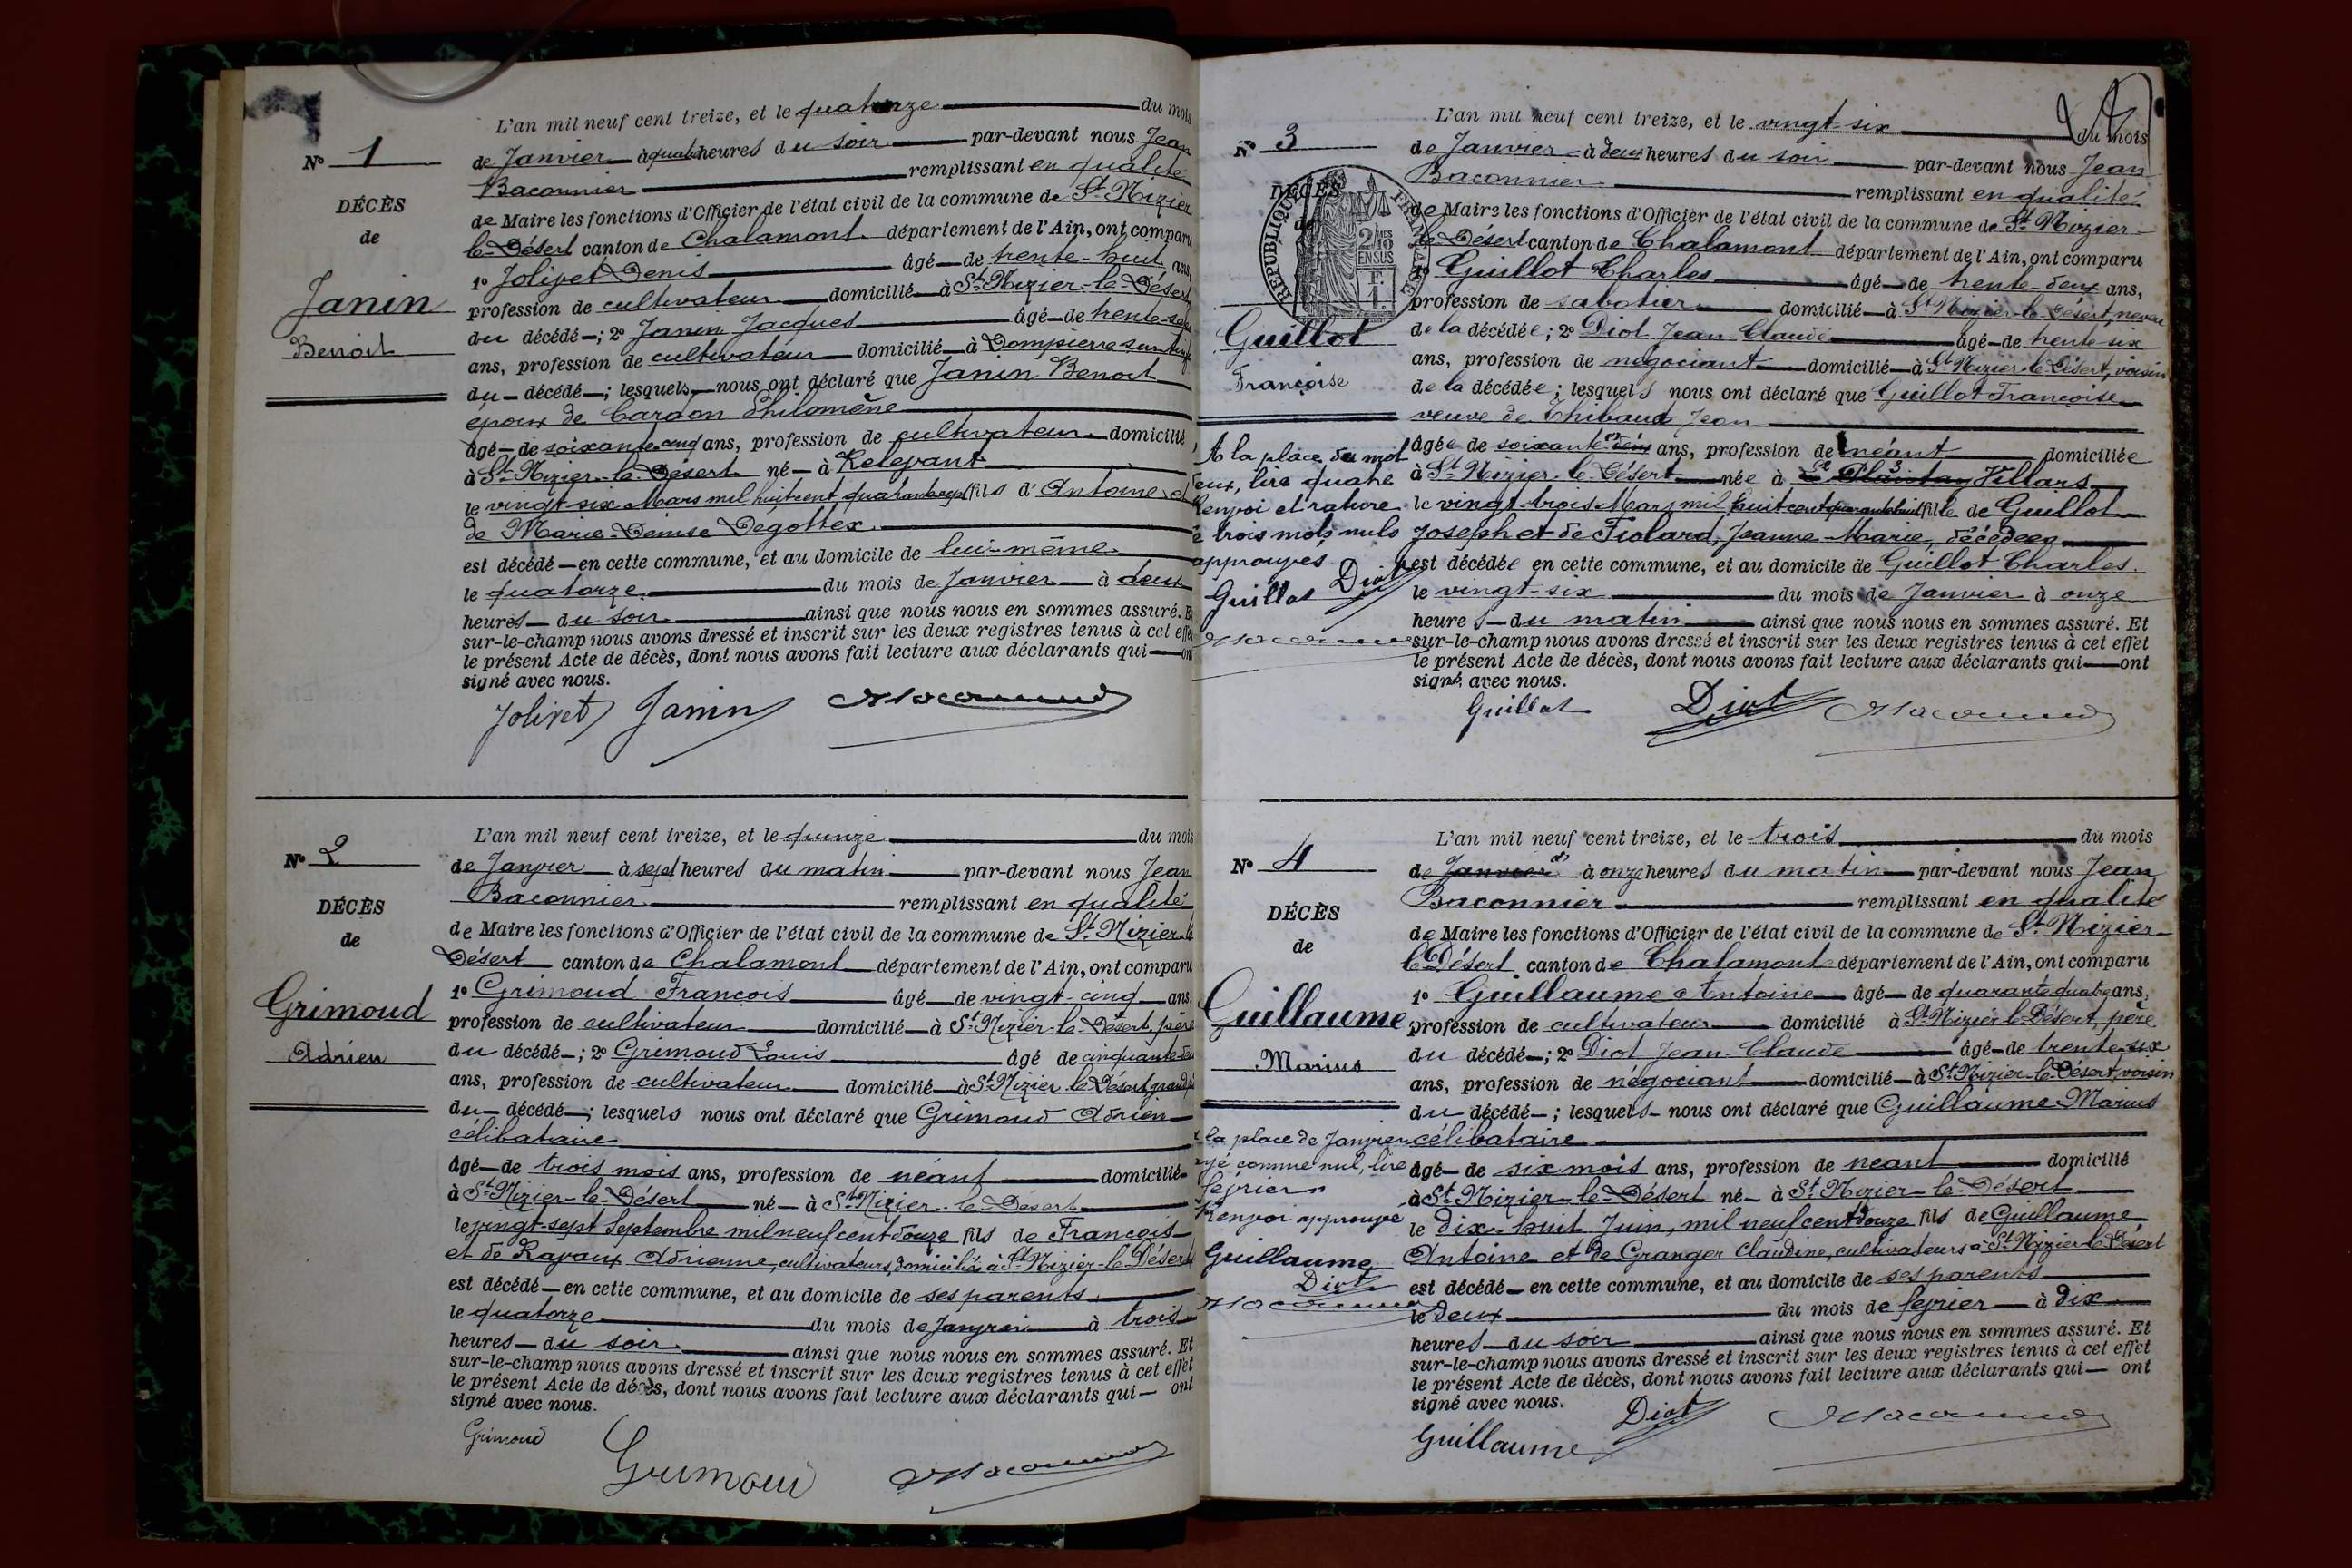 N° 1
DÉCÈS
de
Janin
Benoit
L'an mil neuf cent treize, et le quatorze du mois
de Janvier à quatre heures du soir par-devant nous Jean
Baconnier remplissant en qualité
de Maire les fonctions d'Officier de l'état civil de la commune de St-Nizier
le-Désert canton de Chalamont département de l'Ain, ont comparu
1° Jolivet Denis âgé de trente-huit ans,
profession de cultivateur domicilié à St-Nizier-le-Désert
du décédé; 2° Janin Jacques âgé de trente-sept
ans, profession de cultivateur domicilié à Dompierre sur
du décédé; lesquels nous ont déclaré que Janin Benoit
époux de Cardon Philomène
âgé de soixante cinq ans, profession de cultivateur domicilié
à St-Nizier-le-Désert né à Relevant
le vingt-six Mars mil huit cent quarante sept fils d'Antoine et
de Marie-Denise Dégottex
est décédé en cette commune, et au domicile de lui-même
le quatorze du mois de Janvier à deux
heures du soir ainsi que nous nous en sommes assuré. Et
sur-le-champ nous avons dressé et inscrit sur les deux registres tenus à cet effet
le présent Acte de décès, dont nous avons fait lecture aux déclarants qui ont
signé avec nous.
Jolivet Janin Baconnier
N° 2
DÉCÈS
de
Grimoud
Adrien
L'an mil neuf cent treize, et le quinze du mois
de Janvier à sept heures du matin par-devant nous Jean
Baconnier remplissant en qualité
de Maire les fonctions d'Officier de l'état civil de la commune de St-Nizier-le
Désert canton de Chalamont département de l'Ain, ont comparu
1° Grimoud François âgé de vingt-cinq ans,
profession de cultivateur domicilié à St-Nizier-le-Désert, père
du décédé; 2° Grimoud Louis âgé de cinquante-deux
ans, profession de cultivateur domicilié à St-Nizier-le-Désert, grand père
du décédé; lesquels nous ont déclaré que Grimoud Adrien
célibataire
âgé de trois mois ans, profession de néant domicilié
à St-Nizier-le-Désert né à St-Nizier-le-Désert
le vingt-sept Septembre mil neuf cent douze fils de François
et de Ravaux Adrienne, cultivateurs, domiciliés à St-Nizier-le-Désert
est décédé en cette commune, et au domicile de ses parents
le quatorze du mois de Janvier à trois
heures du soir ainsi que nous nous en sommes assuré. Et
sur-le-champ nous avons dressé et inscrit sur les deux registres tenus à cet effet
le présent Acte de décès, dont nous avons fait lecture aux déclarants qui ont
signé avec nous.
Grimoud Grimoud Baconnier
N° 3
DÉCÈS
de
RÉPUBLIQUE FRANÇAISE
2/10 EN SUS
F. 1.
Guillot
Françoise
A la place du mot
deux, lire quatre
Renvoi et rature
de trois mots nuls
approuvés
Guillot Diot
Baconnier
L'an mil neuf cent treize, et le vingt-six du mois
de Janvier à deux heures du soir par-devant nous Jean
Baconnier remplissant en qualité
de Maire les fonctions d'Officier de l'état civil de la commune de St-Nizier-
le-Désert canton de Chalamont département de l'Ain, ont comparu
1° Guillot Charles âgé de trente-deux ans,
profession de sabotier domicilié à St-Nizier-le-Désert, neveu
de la décédée; 2° Diot Jean-Claude âgé de trente-six
ans, profession de négociant domicilié à St-Nizier-le-Désert, voisin
de la décédée; lesquels nous ont déclaré que Guillot Françoise
veuve de Thibaud Jean
âgée de soixante-deux ans, profession de néant domiciliée
à St-Nizier-le-Désert née à Villars
le vingt-trois Mars mil huit cent quarante huit fille de Guillot
Joseph et de Fiolard, Jeanne-Marie, décédées
est décédée en cette commune, et au domicile de Guillot Charles
le vingt-six du mois de Janvier à onze
heures du matin ainsi que nous nous en sommes assuré. Et
sur-le-champ nous avons dressé et inscrit sur les deux registres tenus à cet effet
le présent Acte de décès, dont nous avons fait lecture aux déclarants qui ont
signé avec nous.
Guillot Diot Baconnier
N° 4
DÉCÈS
de
Guillaume
Marius
A la place de Janvier
rayé comme nul, lire
février
Renvoi approuvé
Guillaume
Diot
Baconnier
L'an mil neuf cent treize, et le trois du mois
de Janvier à onze heures du matin par-devant nous Jean
Baconnier remplissant en qualité
de Maire les fonctions d'Officier de l'état civil de la commune de St-Nizier-
le-Désert canton de Chalamont département de l'Ain, ont comparu
1° Guillaume Antoine âgé de quarante quatre ans,
profession de cultivateur domicilié à St-Nizier-le-Désert, père
du décédé; 2° Diot Jean-Claude âgé de trente-six
ans, profession de négociant domicilié à St-Nizier-le-Désert, voisin
du décédé; lesquels nous ont déclaré que Guillaume Marius
célibataire
âgé de six mois ans, profession de néant domicilié
à St-Nizier-le-Désert né à St-Nizier-le-Désert
le dix-huit Juin, mil neuf cent douze fils de Guillaume
Antoine et de Granger Claudine, cultivateurs à St-Nizier-le-Désert
est décédé en cette commune, et au domicile de ses parents
le deux du mois de février à dix
heures du soir ainsi que nous nous en sommes assuré. Et
sur-le-champ nous avons dressé et inscrit sur les deux registres tenus à cet effet
le présent Acte de décès, dont nous avons fait lecture aux déclarants qui ont
signé avec nous.
Guillaume Diot Baconnier